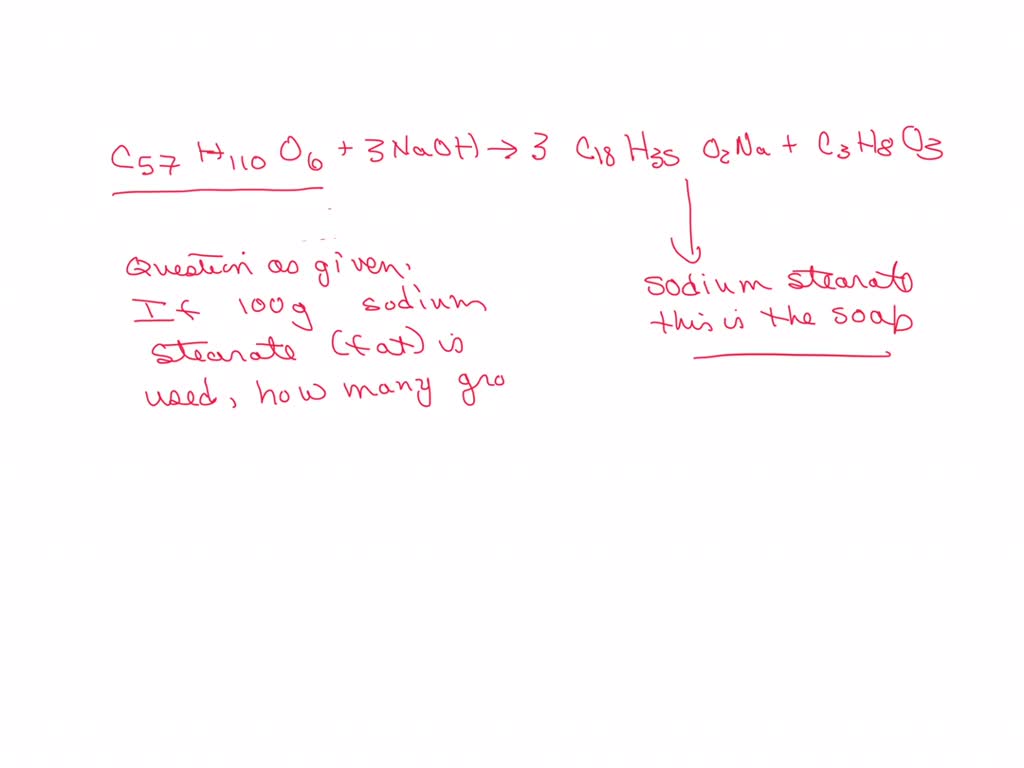 C57 H110 O6 + 3NaOH → 3 C18 H35 O2Na + C3H8O3
Question as given:
If 100g sodium
stearate (fat) is
used, how many gra
sodium stearate
this is the soap